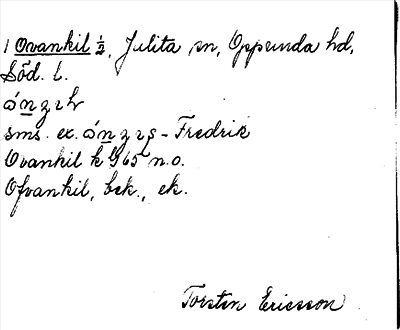 1 Ovankil ½, Julita sn, Oppunda hd,
Söd. l.
sms. ex. - Fredrik
Ovankil k G65 n.o.
Ofvankil, bek., ek.
Torsten Ericsson